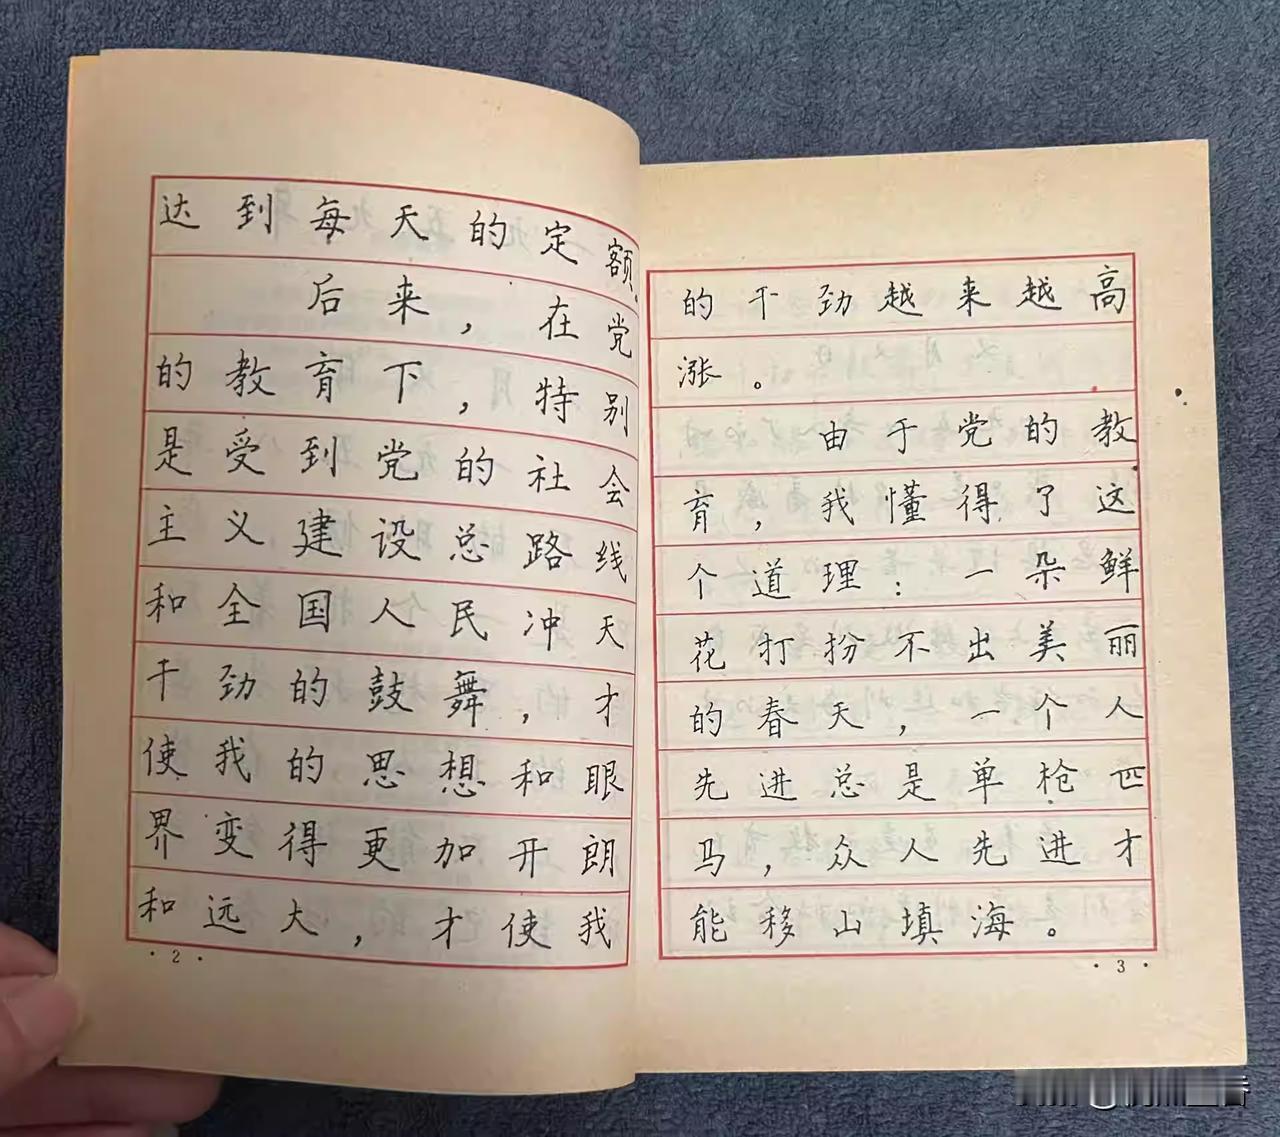 达到每天的定额。
后来，在党
的教育下，特别
是受到党的社会
主义建设总路线
和全国人民冲天
干劲的鼓舞，才
使我的思想和眼
界变得更加开朗
和远大，才使我
·2·
的干劲越来越高
涨。
由于党的教
育，我懂得了这
个道理：一朵鲜
花打扮不出美丽
的春天，一个人
先进总是单枪匹
马，众人先进才
能移山填海。
·3·